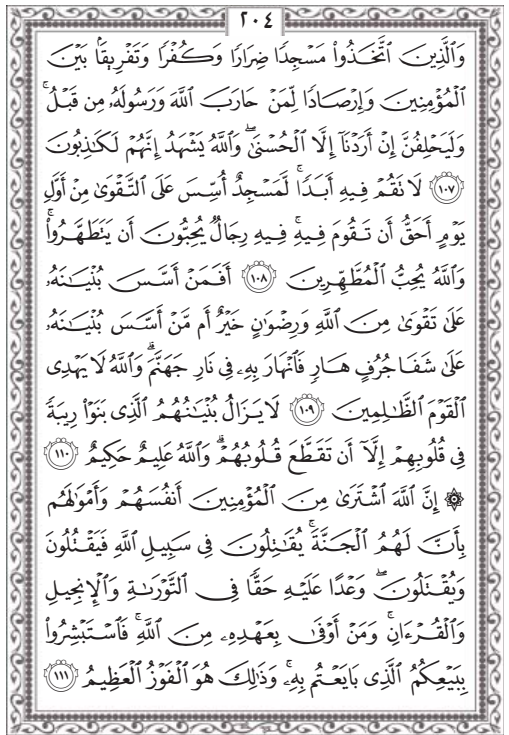 ٢٠٤
وَالَّذِينَ اتَّخَذُوا۟ مَسْجِدًا ضِرَارًا وَكُفْرًا وَتَفْرِيقًۢا بَيْنَ
الْمُؤْمِنِينَ وَإِرْصَادًا لِّمَنْ حَارَبَ اللَّهَ وَرَسُولَهُۥ مِن قَبْلُ ۚ
وَلَيَحْلِفُنَّ إِنْ أَرَدْنَآ إِلَّا الْحُسْنَىٰ ۖ وَاللَّهُ يَشْهَدُ إِنَّهُمْ لَكَـٰذِبُونَ
١٠٧ لَا تَقُمْ فِيهِ أَبَدًا ۚ لَّمَسْجِدٌ أُسِّسَ عَلَى التَّقْوَىٰ مِنْ أَوَّلِ
يَوْمٍ أَحَقُّ أَن تَقُومَ فِيهِ ۚ فِيهِ رِجَالٌ يُحِبُّونَ أَن يَتَطَهَّرُوا۟ ۚ
وَاللَّهُ يُحِبُّ الْمُطَّهِّرِينَ ١٠٨ أَفَمَنْ أَسَّسَ بُنْيَـٰنَهُۥ
عَلَىٰ تَقْوَىٰ مِنَ اللَّهِ وَرِضْوَٰنٍ خَيْرٌ أَم مَّنْ أَسَّسَ بُنْيَـٰنَهُۥ
عَلَىٰ شَفَا جُرُفٍ هَارٍ فَانْهَارَ بِهِۦ فِى نَارِ جَهَنَّمَ ۗ وَاللَّهُ لَا يَهْدِى
الْقَوْمَ الظَّـٰلِمِينَ ١٠٩ لَا يَزَالُ بُنْيَـٰنُهُمُ الَّذِى بَنَوْا۟ رِيبَةً
فِى قُلُوبِهِمْ إِلَّآ أَن تَقَطَّعَ قُلُوبُهُمْ ۗ وَاللَّهُ عَلِيمٌ حَكِيمٌ ١١٠
۞ إِنَّ اللَّهَ اشْتَرَىٰ مِنَ الْمُؤْمِنِينَ أَنفُسَهُمْ وَأَمْوَٰلَهُم
بِأَنَّ لَهُمُ الْجَنَّةَ ۚ يُقَـٰتِلُونَ فِى سَبِيلِ اللَّهِ فَيَقْتُلُونَ
وَيُقْتَلُونَ ۖ وَعْدًا عَلَيْهِ حَقًّا فِى التَّوْرَىٰةِ وَالْإِنجِيلِ
وَالْقُرْءَانِ ۚ وَمَنْ أَوْفَىٰ بِعَهْدِهِۦ مِنَ اللَّهِ ۚ فَاسْتَبْشِرُوا۟
بِبَيْعِكُمُ الَّذِى بَايَعْتُم بِهِۦ ۚ وَذَٰلِكَ هُوَ الْفَوْزُ الْعَظِيمُ ١١١